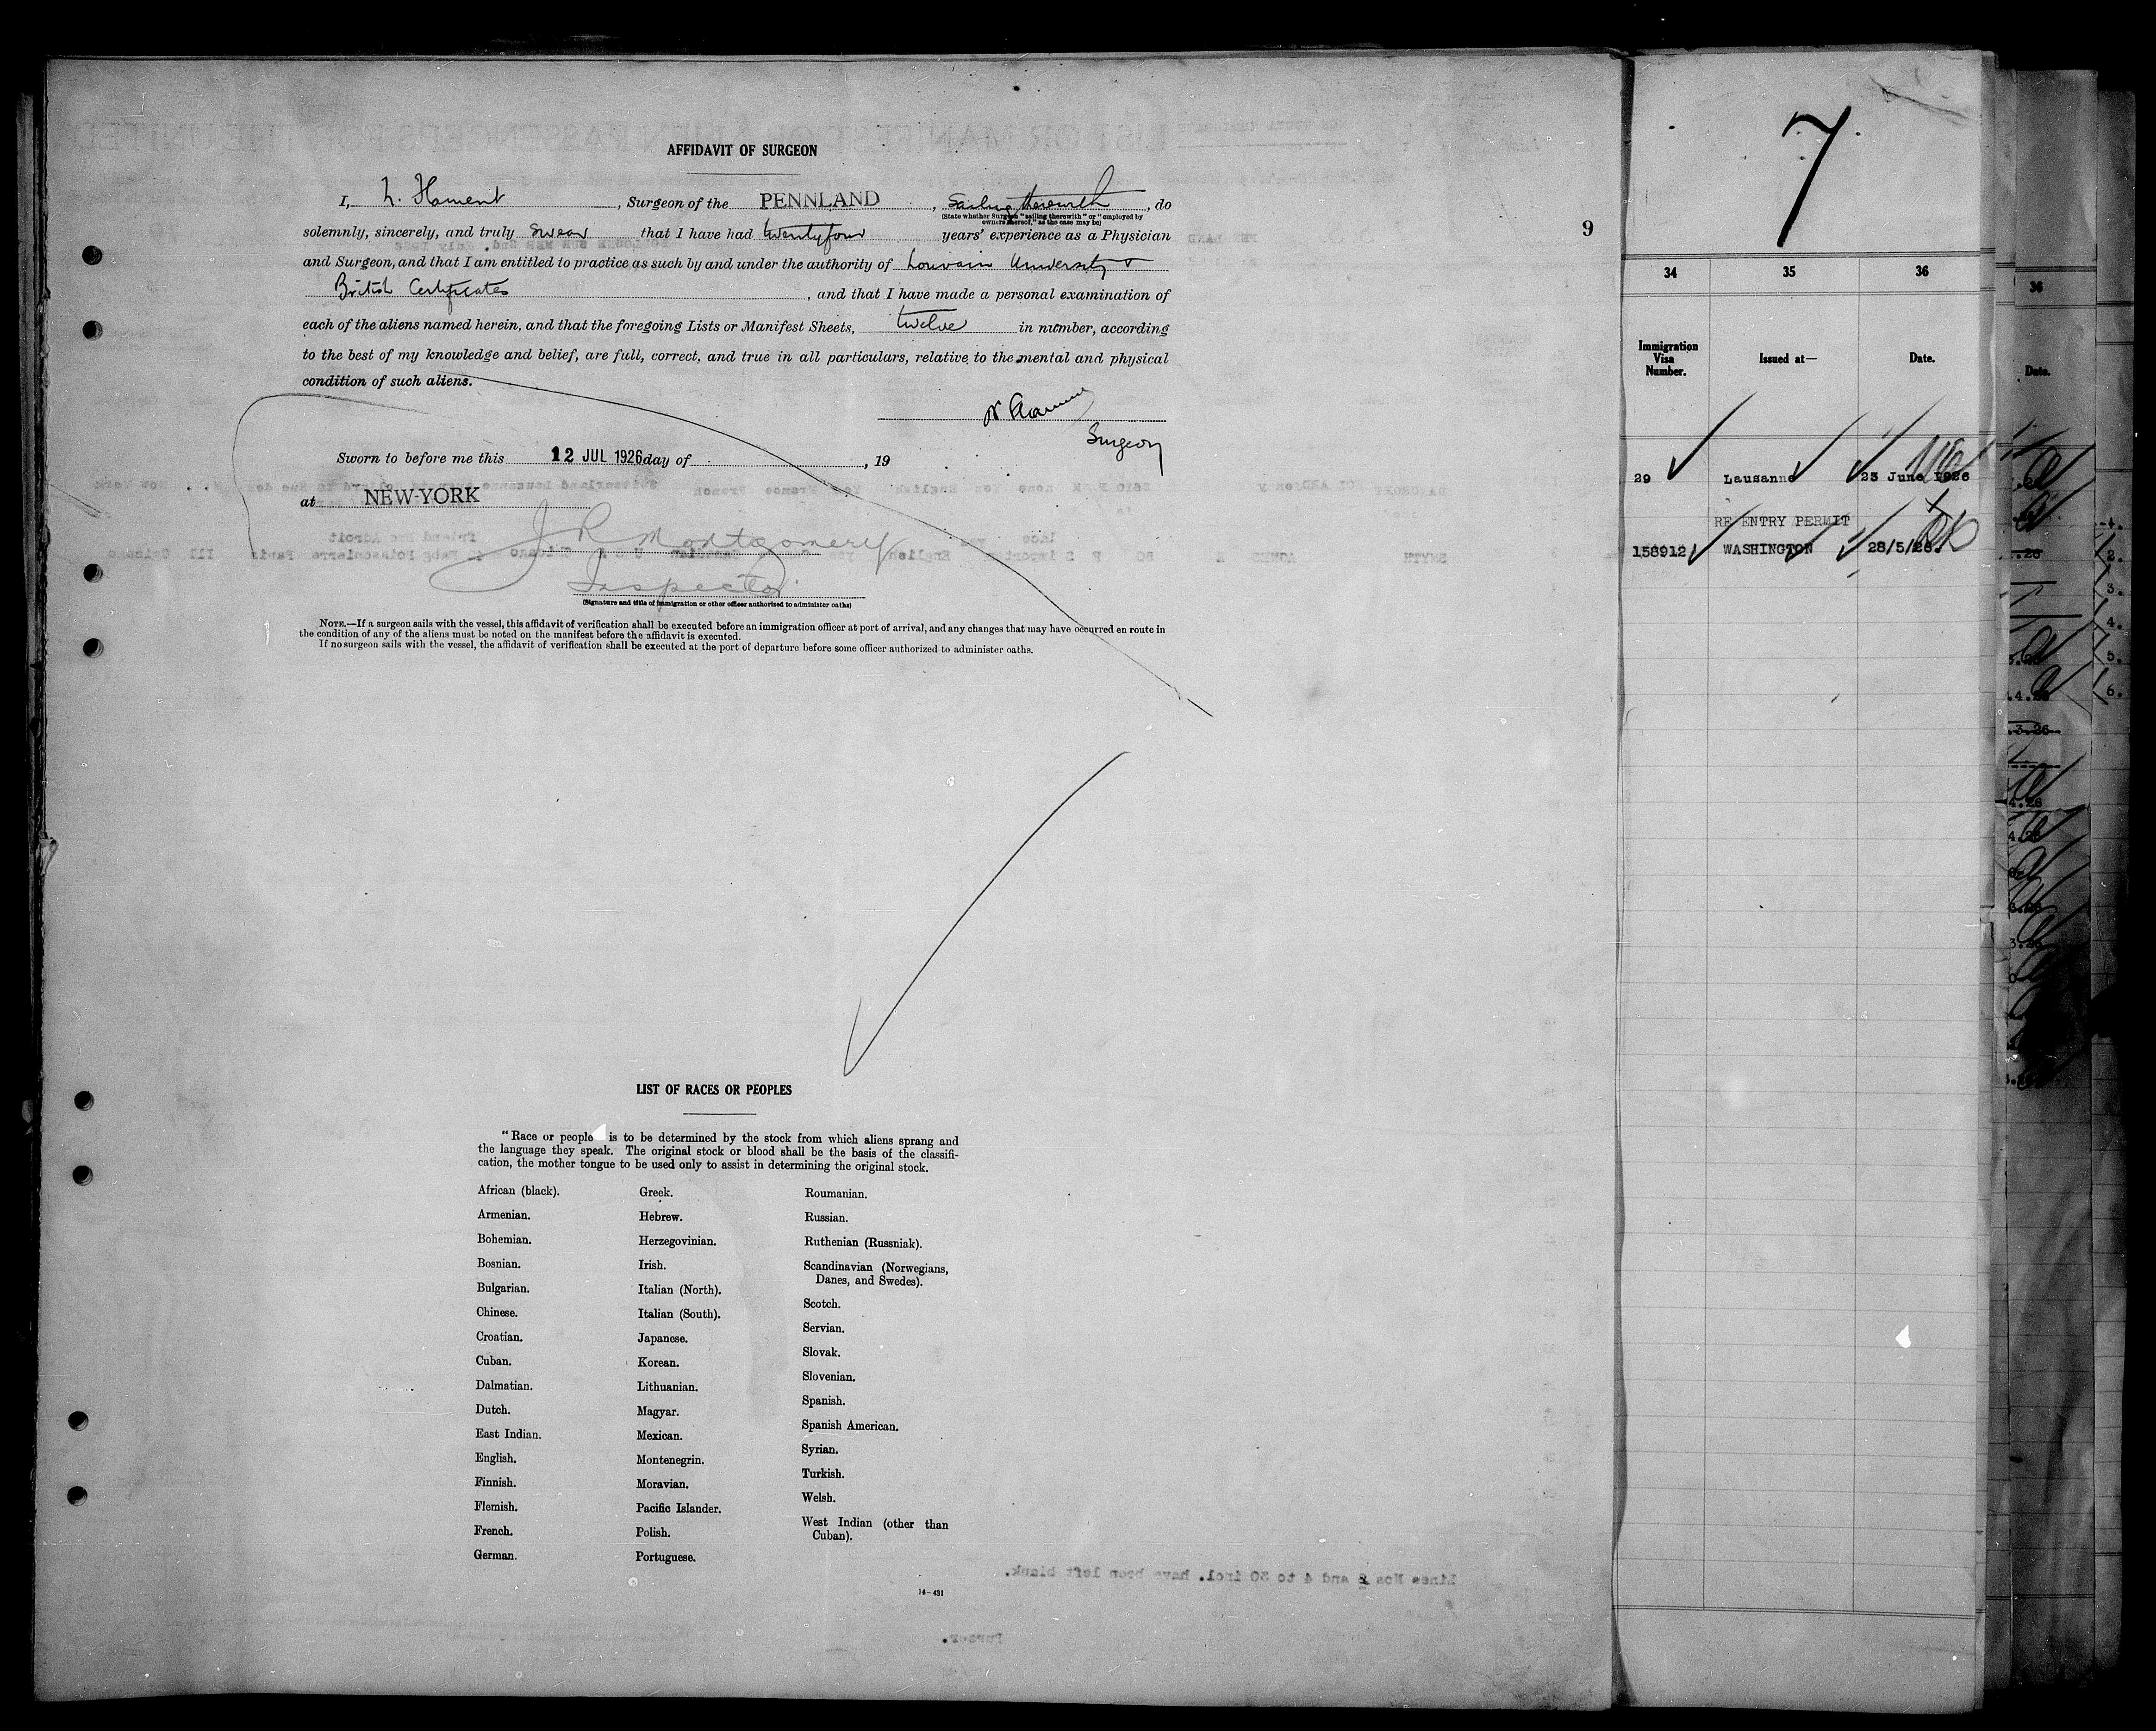 AFFIDAVIT OF SURGEON
I, , Surgeon of the PENNLAND, sailing therewith, do
(State whether Surgeon "sailing therewith" or "employed by
owners thereof," as the case may be)
solemnly, sincerely, and truly swear that I have had twentyfour years' experience as a Physician
and Surgeon, and that I am entitled to practice as such by and under the authority of Louvain University &
British Certificates, and that I have made a personal examination of
each of the aliens named herein, and that the foregoing Lists or Manifest Sheets, twelve in number, according
to the best of my knowledge and belief, are full, correct, and true in all particulars, relative to the mental and physical
condition of such aliens.
Surgeon
Sworn to before me this 12 JUL 1926 day of , 19
at NEW-YORK
J R Montgomery
Inspector
(Signature and title of immigration or other officer authorized to administer oaths)
NOTE.—If a surgeon sails with the vessel, this affidavit of verification shall be executed before an immigration officer at port of arrival, and any changes that may have occurred en route in
the condition of any of the aliens must be noted on the manifest before the affidavit is executed.
If no surgeon sails with the vessel, the affidavit of verification shall be executed at the port of departure before some officer authorized to administer oaths.
LIST OF RACES OR PEOPLES
"Race or people is to be determined by the stock from which aliens sprang and
the language they speak. The original stock or blood shall be the basis of the classifi-
cation, the mother tongue to be used only to assist in determining the original stock.
African (black).
Armenian.
Bohemian.
Bosnian.
Bulgarian.
Chinese.
Croatian.
Cuban.
Dalmatian.
Dutch.
East Indian.
English.
Finnish.
Flemish.
French.
German.
Greek.
Hebrew.
Herzegovinian.
Irish.
Italian (North).
Italian (South).
Japanese.
Korean.
Lithuanian.
Magyar.
Mexican.
Montenegrin.
Moravian.
Pacific Islander.
Polish.
Portuguese.
Roumanian.
Russian.
Ruthenian (Russniak).
Scandinavian (Norwegians,
Danes, and Swedes).
Scotch.
Servian.
Slovak.
Slovenian.
Spanish.
Spanish American.
Syrian.
Turkish.
Welsh.
West Indian (other than
Cuban).
14-431
9
7
34 35 36
Immigration
Visa
Number.
Issued at—
Date.
29 Lausanne 23 June 1926
RE ENTRY PERMIT
158912 WASHINGTON 28/5/26
36
Date.
1.
2.
3.
4.
5.
6.